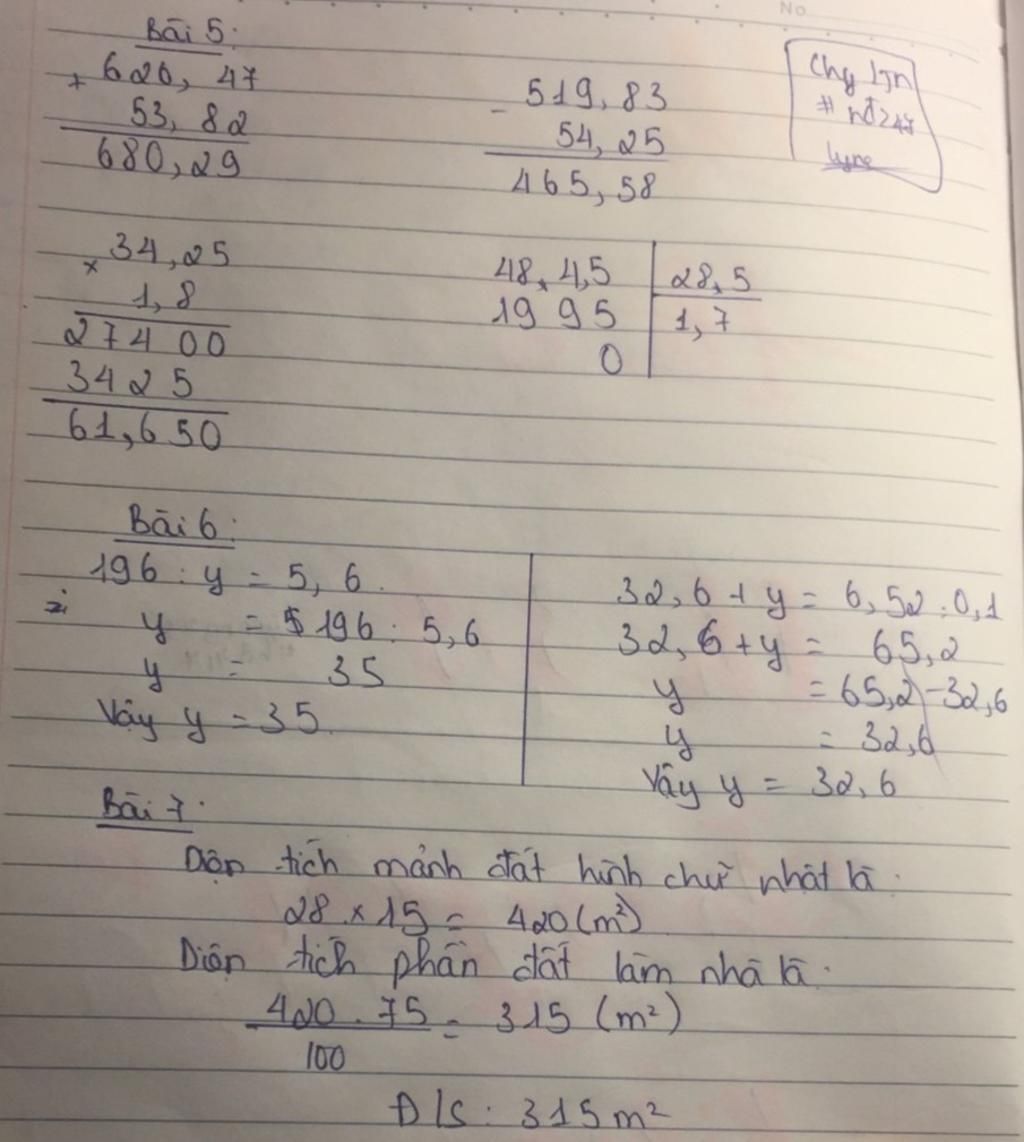 No
Bài 5:
+ 626, 47
53, 82
680, 29
- 519, 83
54, 25
465, 58
× 34, 25
1, 8
27400
3425
61,650
48, 4,5 | 28, 5
19 95 | 1, 7
0
Bài 6:
196 : y = 5, 6.
y = 196 : 5,6
y = 35
Vậy y = 35.
32, 6 + y = 6, 52 : 0,1
32, 6 + y = 65,2
y = 65,2 - 32,6
y = 32,6
Vậy y = 32, 6
Bài 7:
Diện tích mảnh đất hình chữ nhật là:
28 × 15 = 420 (m²)
Diện tích phần đất làm nhà là:
420 . 75 / 100 = 315 (m²)
Đ/S: 315 m²